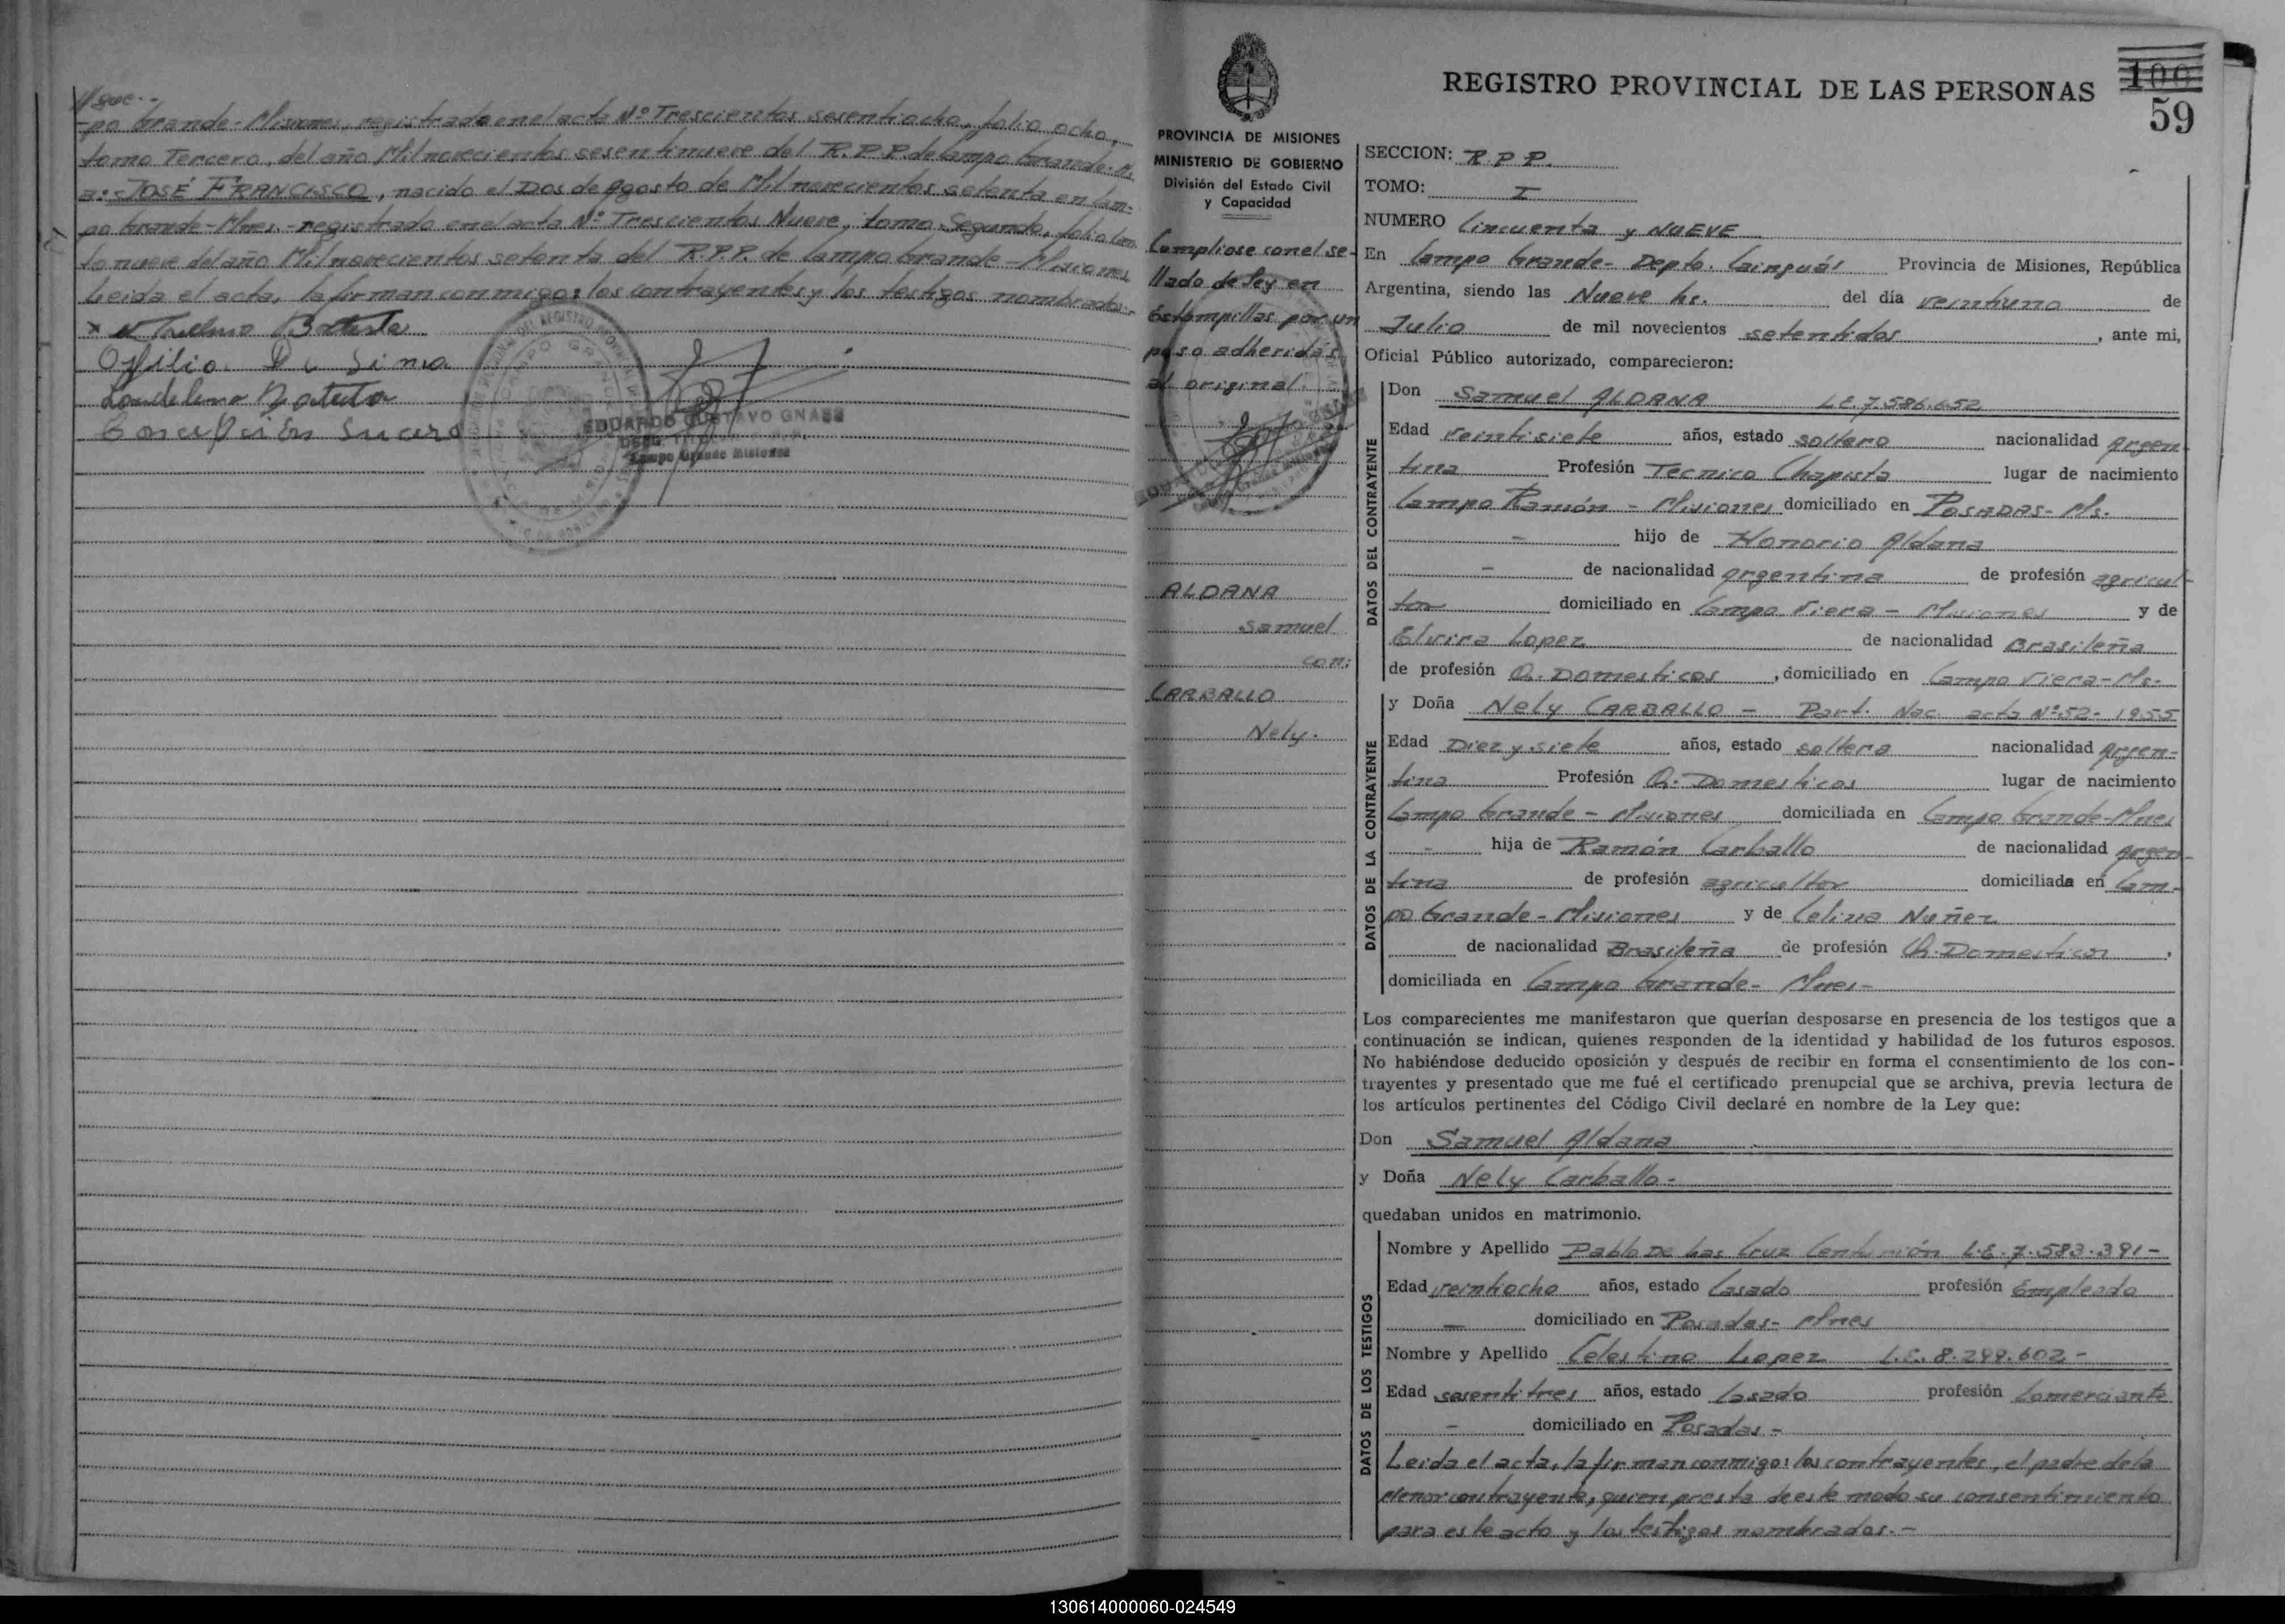 po Grande-Misiones, registrado en el acta Nº Trescientos sesentiocho, folio ocho,
tomo Tercero, del año Mil novecientos sesentinueve del R.P.P. de Campo Grande-
a: JOSÉ FRANCISCO, nacido el Dos de Agosto de Mil novecientos setenta en Cam-
po Grande-Mnes.-registrado en el acta Nº Trescientos Nueve, tomo Segundo, folio
to nueve del año Mil novecientos setenta del R.P.P. de Campo Grande-Misiones
Leida el acta, la firman conmigo: los contrayentes y los testigos nombrados.-
Concepción Lucero
EDUARDO GUSTAVO GNASS
Campo Grande Misiones
REGISTRO PROVINCIAL DE LAS PERSONAS
100
59
PROVINCIA DE MISIONES
MINISTERIO DE GOBIERNO
División del Estado Civil
y Capacidad
Cumpliose con el se-
llado de ley en
Estampillas por un
peso adheridas
al original
ALDANA
Samuel
con:
CARBALLO
Nely.
SECCION: R.P.P.
TOMO: I
NUMERO Cincuenta y NUEVE
En Campo Grande- Depto. Cainguás Provincia de Misiones, República
Argentina, siendo las Nueve hs. del día veintiuno de
Julio de mil novecientos setentidos, ante mi,
Oficial Público autorizado, comparecieron:
DATOS DEL CONTRAYENTE
Don Samuel ALDANA L.E. 7.586.652
Edad veintisiete años, estado soltero nacionalidad Argen-
tina Profesión Técnico Chapista lugar de nacimiento
Campo Ramón - Misiones domiciliado en POSADAS- Ms.
- hijo de Honorio Aldana
- de nacionalidad argentina de profesión agricul-
tor domiciliado en Campo Viera - Misiones y de
Elvira Lopez de nacionalidad Brasileña
de profesión Q. Domesticos, domiciliado en Campo Viera-Ms.-
DATOS DE LA CONTRAYENTE
y Doña Nely CARBALLO - Part. Nac. acta Nº 52- 1955
Edad Diez y siete años, estado soltera nacionalidad Argen-
tina Profesión Q. Domesticos lugar de nacimiento
Campo Grande - Misiones domiciliada en Campo Grande-Mnes
- hija de Ramón Carballo de nacionalidad argen-
tina de profesión agricultor domiciliada en Cam-
po Grande-Misiones y de Celina Nuñez
de nacionalidad Brasileña de profesión Q. Domesticos,
domiciliada en Campo Grande- Mnes-
Los comparecientes me manifestaron que querían desposarse en presencia de los testigos que a
continuación se indican, quienes responden de la identidad y habilidad de los futuros esposos.
No habiéndose deducido oposición y después de recibir en forma el consentimiento de los con-
trayentes y presentado que me fué el certificado prenupcial que se archiva, previa lectura de
los artículos pertinentes del Código Civil declaré en nombre de la Ley que:
Don Samuel Aldana
y Doña Nely Carballo-
quedaban unidos en matrimonio.
DATOS DE LOS TESTIGOS
Nombre y Apellido Pablo De Las Cruz Centurión L.E. 7.583.391-
Edad veintiocho años, estado Casado profesión Empleado
- domiciliado en Posadas- Mnes
Nombre y Apellido Celestino Lopez L.E. 8.299.602-
Edad sesentitres años, estado Casado profesión Comerciante
- domiciliado en Posadas-
Leida el acta, la firman conmigo: los contrayentes, el padre de la
Menor contrayente, quien presta de este modo su consentimiento
para este acto y los testigos nombrados.-
130614000060-024549